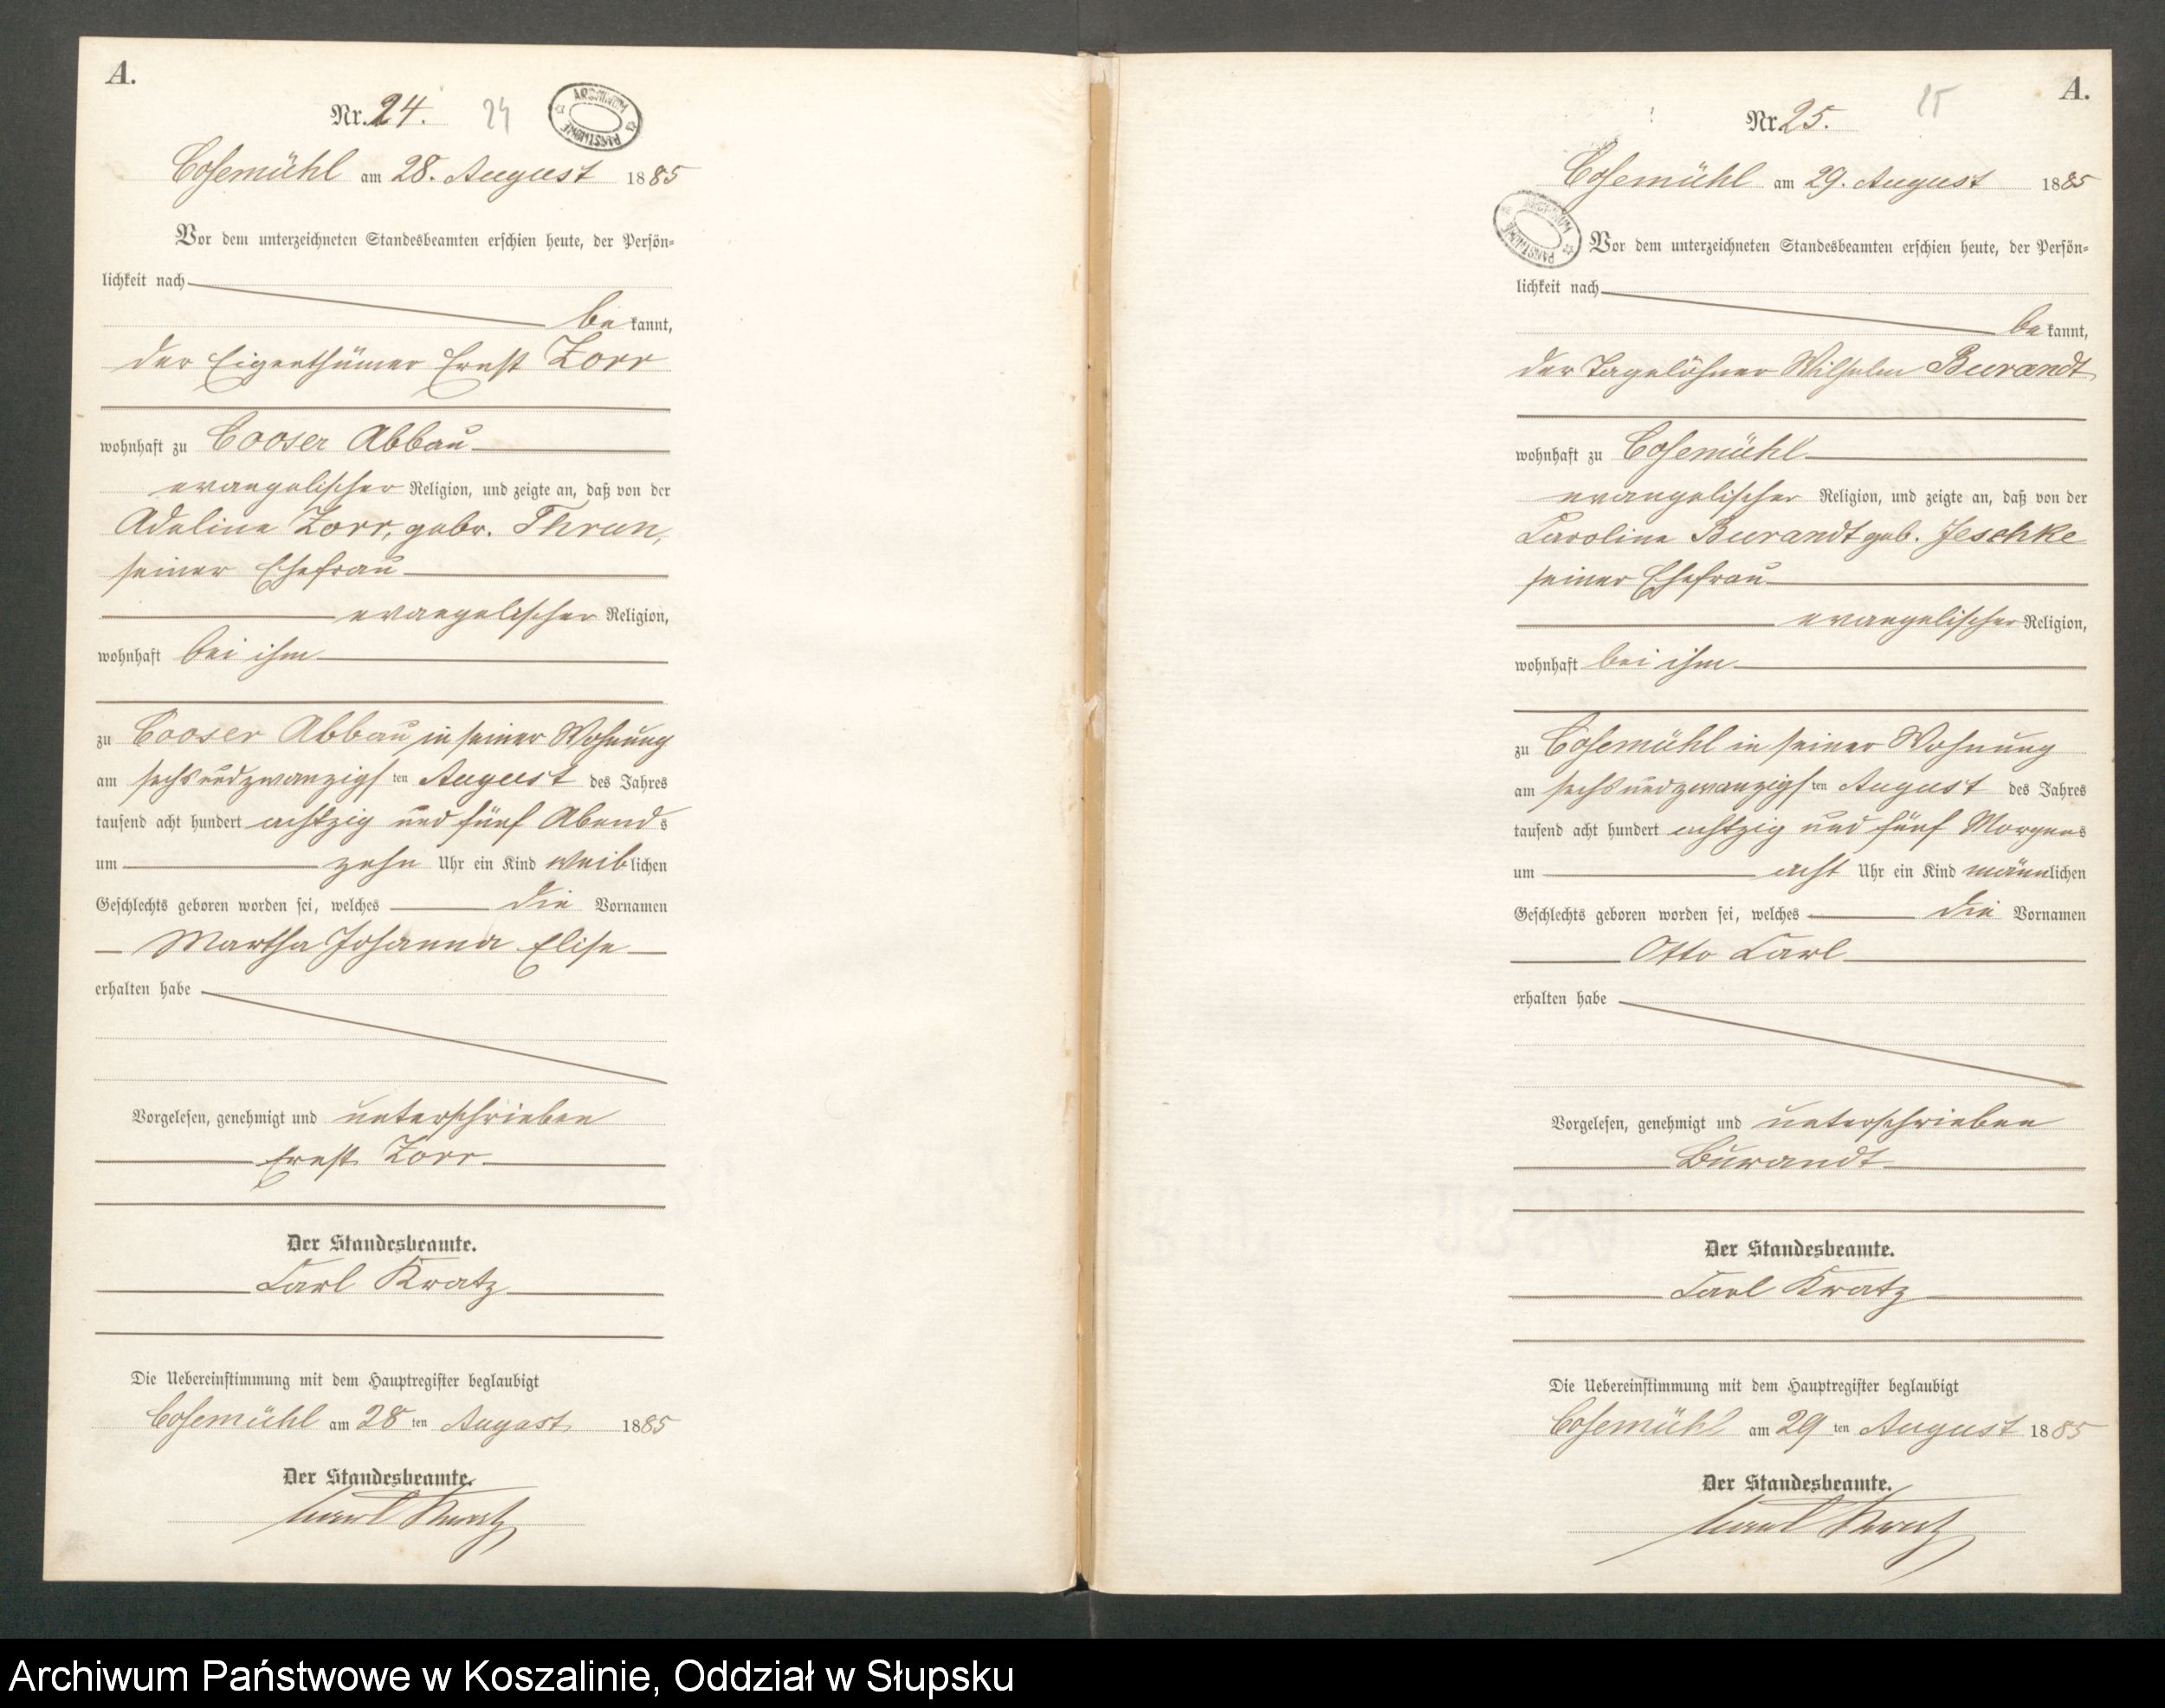 A.
Nr. 24. 24
ARCHIWUM PAŃSTWOWE
Cosemühl am 28. August 1885
Vor dem unterzeichneten Standesbeamten erschien heute, der Persön=
lichkeit nach
be kannt,
der Eigenthümer Ernst Zorr
wohnhaft zu Cooser Abbau
evangelischer Religion, und zeigte an, daß von der
Adeline Zorr, gebr. Thrun,
seiner Ehefrau
evangelischer Religion,
wohnhaft bei ihm
zu Cooser Abbau in seiner Wohnung
am sechsundzwanzigsten August des Jahres
tausend acht hundert achtzig und fünf Abends
um zehn Uhr ein Kind weiblichen
Geschlechts geboren worden sei, welches die Vornamen
Martha Johanna Elise
erhalten habe
Vorgelesen, genehmigt und unterschrieben
Ernst Zorr
Der Standesbeamte.
Carl Kratz
Die Uebereinstimmung mit dem Hauptregister beglaubigt
Cosemühl am 28 ten August 1885
Der Standesbeamte.
Carl Kratz
A.
Nr. 25. 25
Cosemühl am 29. August 1885
ARCHIWUM PAŃSTWOWE
Vor dem unterzeichneten Standesbeamten erschien heute, der Persön=
lichkeit nach
be kannt,
der Tagelöhner Wilhelm Burandt
wohnhaft zu Cosemühl
evangelischer Religion, und zeigte an, daß von der
Caroline Burandt geb. Jeschke
seiner Ehefrau
evangelischer Religion,
wohnhaft bei ihm
zu Cosemühl in seiner Wohnung
am sechsundzwanzigsten August des Jahres
tausend acht hundert achtzig und fünf Morgens
um acht Uhr ein Kind männlichen
Geschlechts geboren worden sei, welches die Vornamen
Otto Carl
erhalten habe
Vorgelesen, genehmigt und unterschrieben
Burandt
Der Standesbeamte.
Carl Kratz
Die Uebereinstimmung mit dem Hauptregister beglaubigt
Cosemühl am 29 ten August 1885
Der Standesbeamte.
Carl Kratz
Archiwum Państwowe w Koszalinie, Oddział w Słupsku